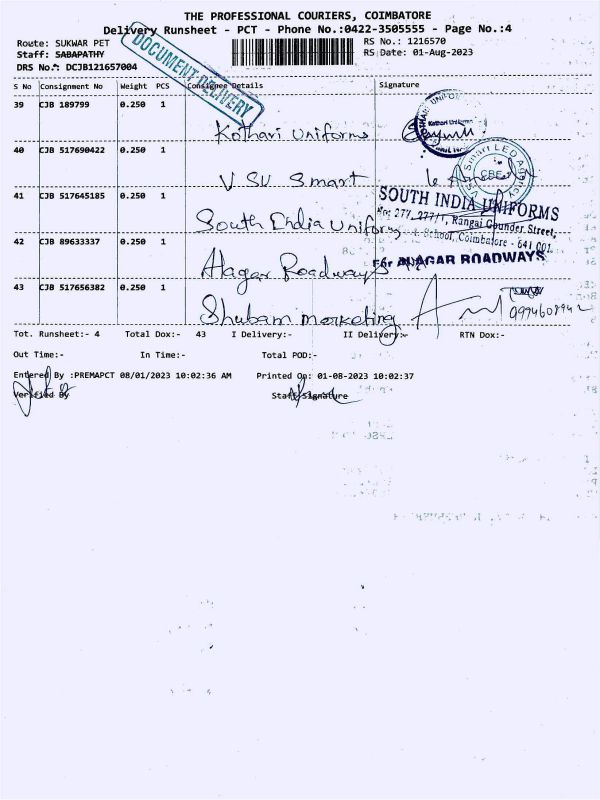 THE PROFESSIONAL COURIERS, COIMBATORE
Delivery Runsheet - PCT - Phone No.:0422-3505555 - Page No.:4
Route: SUKWAR PET
RS No.: 1216570
Staff: SABAPATHY
RS Date: 01-Aug-2023
DRS No.: DCJB121657004
DOCUMENT DELIVERY
S No Consignment No Weight PCS Consignee Details Signature
39 CJB 189799 0.250 1 Kothari Uniforms
Kothari Uniforms
40 CJB 517690422 0.250 1 VSV Smart
VSV Smart LED Agency
CBE
41 CJB 517645185 0.250 1 South India Uniforms
SOUTH INDIA UNIFORMS
No: 277, 277/1, Rangai Gounder Street,
School, Coimbatore - 641 001.
42 CJB 89633337 0.250 1 Alagar Roadways
For ALAGAR ROADWAYS
43 CJB 517656382 0.250 1 Shubam marketing
Tot. Runsheet:- 4 Total Dox:- 43 I Delivery:- II Delivery:- RTN Dox:-
Out Time:- In Time:- Total POD:-
Entered By :PREMAPCT 08/01/2023 10:02:36 AM Printed On: 01-08-2023 10:02:37
Verified By Staff Signature